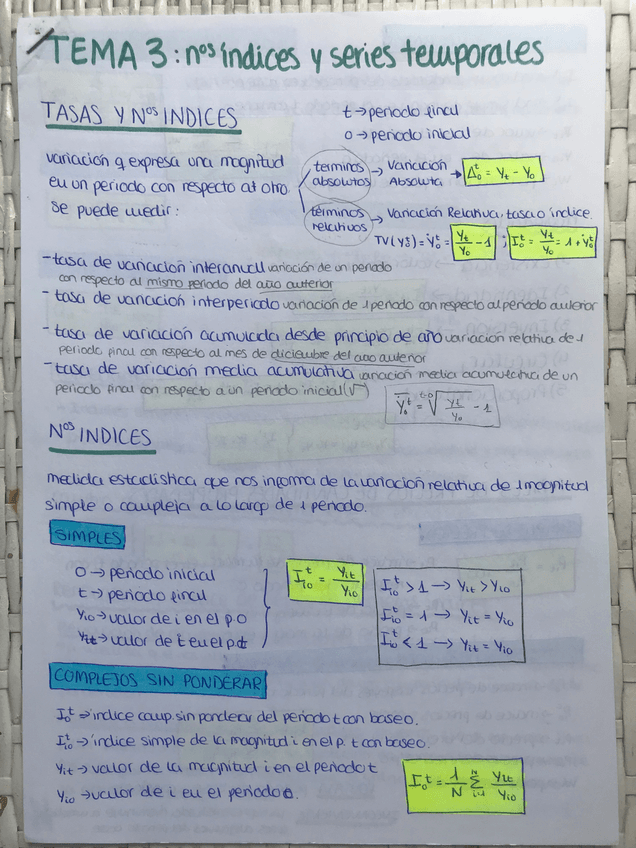 TEMA 3: nos índices y series temporales
TASAS Y Nos INDICES
t → periodo final
o → periodo inicial
variación q expresa una magnitud
en un periodo con respecto al otro
se puede medir:
terminos absolutos → Variación Absoluta → Δ₀ᵗ = Yt - Y0
términos relativos → Variación Relativa, tasa o índice.
TV(Y₀ᵗ) = Ẏ₀ᵗ = Yt/Y0 - 1 ; I₀ᵗ = Yt/Y0 = 1 + Ẏ₀ᵗ
- tasa de variación interanual variación de un periodo
con respecto al mismo periodo del año anterior
- tasa de variación interperiodo variación de 1 periodo con respecto al periodo anterior
- tasa de variación acumulada desde principio de año variación relativa de 1
periodo final con respecto al mes de diciembre del año anterior
- tasa de variación media acumulativa variación media acumulativa de un
periodo final con respecto a un periodo inicial (√)
Ẏ₀ᵗ = ᵗ⁻⁰√(Yt/Y0) - 1
Nos INDICES
medida estadística que nos informa de la variación relativa de 1 magnitud
simple o compleja a lo largo de 1 periodo.
SIMPLES
O → periodo inicial
t → periodo final
Yio → valor de i en el p.o
Yit → valor de i en el p.t
Iioᵗ = Yit/Yio
Iioᵗ > 1 → Yit > Yio
Iioᵗ = 1 → Yit = Yio
Iioᵗ < 1 → Yit = Yio
COMPLEJOS SIN PONDERAR
I₀ᵗ → indice comp. sin ponderar del periodo t con base o.
Iioᵗ → índice simple de la magnitud i en el p. t con base o.
Yit → valor de la magnitud i en el periodo t
Yio → valor de i en el periodo o.
I₀ᵗ = 1/N Σ i=1 N Yit/Yio